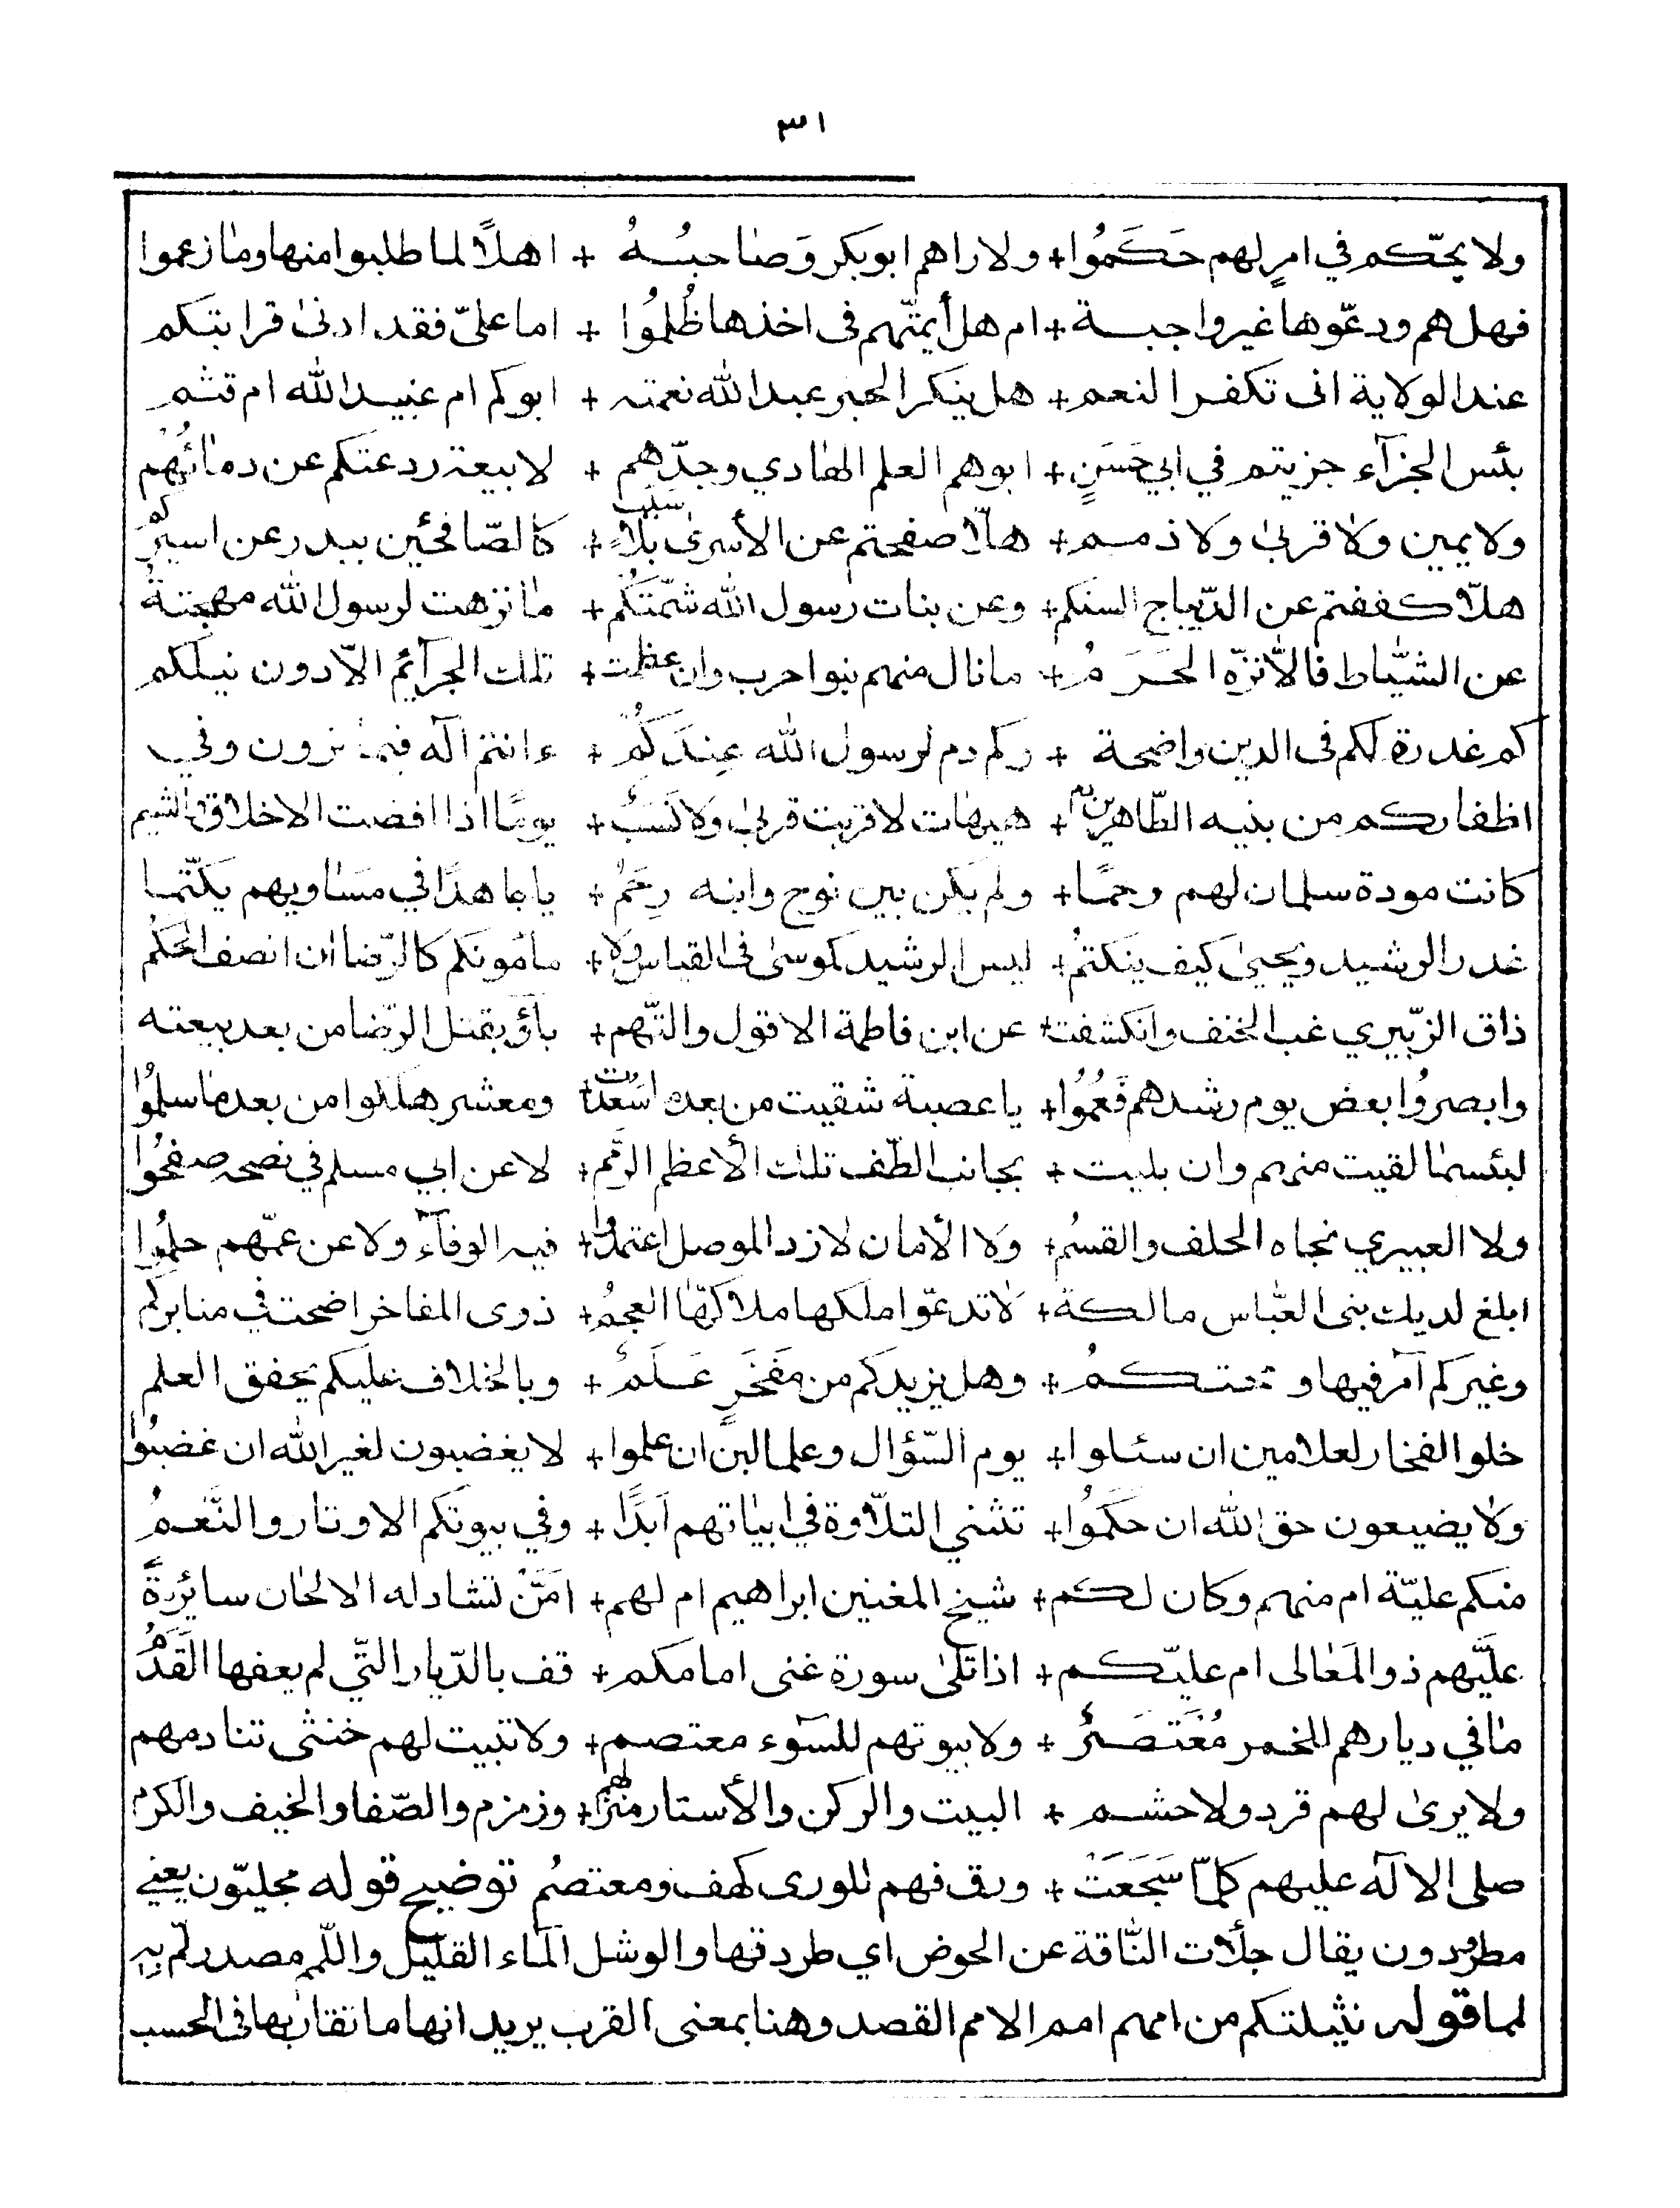 ٣١
ولا يحّكم في امرٍ لهم حَكَمُوا + ولا راهم ابوبكر وَصٰاحبُـهُ + اهلًا لما طلبوا منها ومٰا زعموا
فهل هم ودعّوها غير واجبـة + ام هل أيمتّهم فى اخذها ظُلِمُوا + اما علىّ فقد ادنىٰ قرابتكم
عند الولاية انى تكفـر النعم + هل ينكر الحبر عبد الله نعمته + ابوكم ام عبيد الله ام قثم
بئس الجزآء جزيتم في ابي حَسَنٍ + ابوهم العلم الهٰادي وجدّهم + لا بيعة ردعتكم عن دمٰائُهُم
ولا يمين ولٰا قربىٰ ولا ذمـم + هلّا صفحتم عن الأسرىٰ بلا سَبَبٍ + كالصّافحين ببدر عن اسيركُم
هلّا كففتم عن الدّيباج السنكم + وعن بنات رسول الله شَمّتَكُم + مٰا نزهت لرسول الله مهجتهُ
عن السّٰياط فالّأ نزّه الحَـرَمُ + ما نال منهم بنوا حرب وان عظمت + تلك الجرآئم الّا دون نيلكم
كم غدرة لكم فى الدين واضحة + وكم دم لرسول الله عِندَكُمُ + ءانتم آله فيما ترون وفي
اظفاركم من بنيه الطّاهرين دم + هيهات لا قربت قربىٰ ولا نَسَبٌ + يومًا اذا افضت الاخلاق والشيم
كانت مودة سلمان لهم رحمًـا + ولم يكن بين نوح وابنه رحَمُ + يا جاهدًا في مسَاويهم يكتّمـا
غدر الرشيد ويحيىٰ كيف ينكتمُ + ليس الرشيد كموسىٰ فى القياس ولا + مأمونكم كالرّضا ان انصف الحَكَمُ
ذاق الزّبيري غب الحنف وانكشفت + عن ابن فاطمة الاقول والتّهم + بآؤ بقتل الرّضا من بعد بيعته
وابصرُوا بعض يوم رشدهم فَعُمُوا + يا عصبة شقيت من بعد ما سَعُدَت + ومعشر هلكوا من بعد مٰا سلمُوا
لبئسمٰا لقيت منهم وان بليت + بجانب الطّف تلك الأعظم الرمّم + لا عن ابي مسلم في نصحه صفحُوا
ولا العبيري نجاه الحلف والقسُم + وَلا الأمان لازد الموصل اعتمدُوا + فيه الوفآء ولا عن عمّهم حلمُوا
ابلغ لديك بنى العّباس مالكة + لٰا تدعّوا ملكها ملاكهّا العجمُ + ذوى المفاخر اضحت في منابركم
وغيركم آمر فيها و تحتـكمُ + وهل يزيدكم من مفَخَرٍ عَـلَمٌ + وبالخلاف عليكم يخفق العلم
خلوا الفخار لعلامين ان سئلوا + يوم السّؤال وعلمالين ان علموا + لا يغضبون لغير الله ان غضبُوا
ولٰا يضيعون حق الله ان حكَمُوا + تثنى التلّاوة في ابيٰاتهم اَبَدًا + وفي بيوتكم الاوتار والنَّغمُ
منكم عليّة ام منهم وكان لكم + شيخ المغنين ابراهيم ام لهم + امَّنْ تشاد له الالحٰان سائرةً
عليَّهم ذو المَعٰالى ام عليّكم + اذا تَلىٰ سورة غنى امامكم + قف بالدّيار التّي لم يعفها القَدَمُ
مٰا في ديارهم للخمر مُعْتَصَـرٌ + ولا بيوتهم للسّوء معتصم + ولا تبيت لهم خنثى تنادمهم
ولا يرىٰ لهم قرد ولا حشـم + البيت والركن والأستار منزلهم + وزمزم والصّفا والخيف والكرم
صلى الالآه عليهم كلمّا سَجَعَتْ + ورق فهم للورى كهف ومعتصمُ توضيح قوله مجليّون يعني
مطرّدون يقال جلأت النّاقة عن الحوض اي طردتها والوشل المآء القليل واللّمم مصدر لمّ به
لما قوله نثيلتكم من اممهم امم الامم القصد وهنا بمعنى القرب يريد انها ما تقاربها فى الحسب